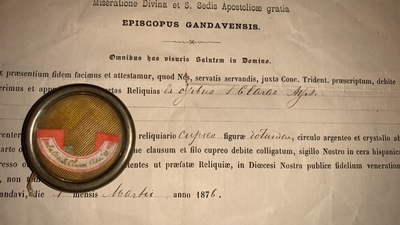 Miseratione Divina et S. Sedis Apostolicæ gratia
EPISCOPUS GANDAVENSIS.
Omnibus has visuris Salutem in Domino.
præsentium fidem facimus et attestamur, quod Nos, servatis servandis, juxta Conc. Trident. præscriptum, debite
rimus et Reliquias Ex ossibus S. Claræ
reliquiario cupreo figuræ rotundæ circulo argenteo et crystallo
ne clausum et filo cupreo debite colligatum, sigillo Nostro in cera hispanica
et præfatæ Reliquiæ, in Diœcesi Nostra publice fidelium veneration
die 1 mensis Martii anno 1876.